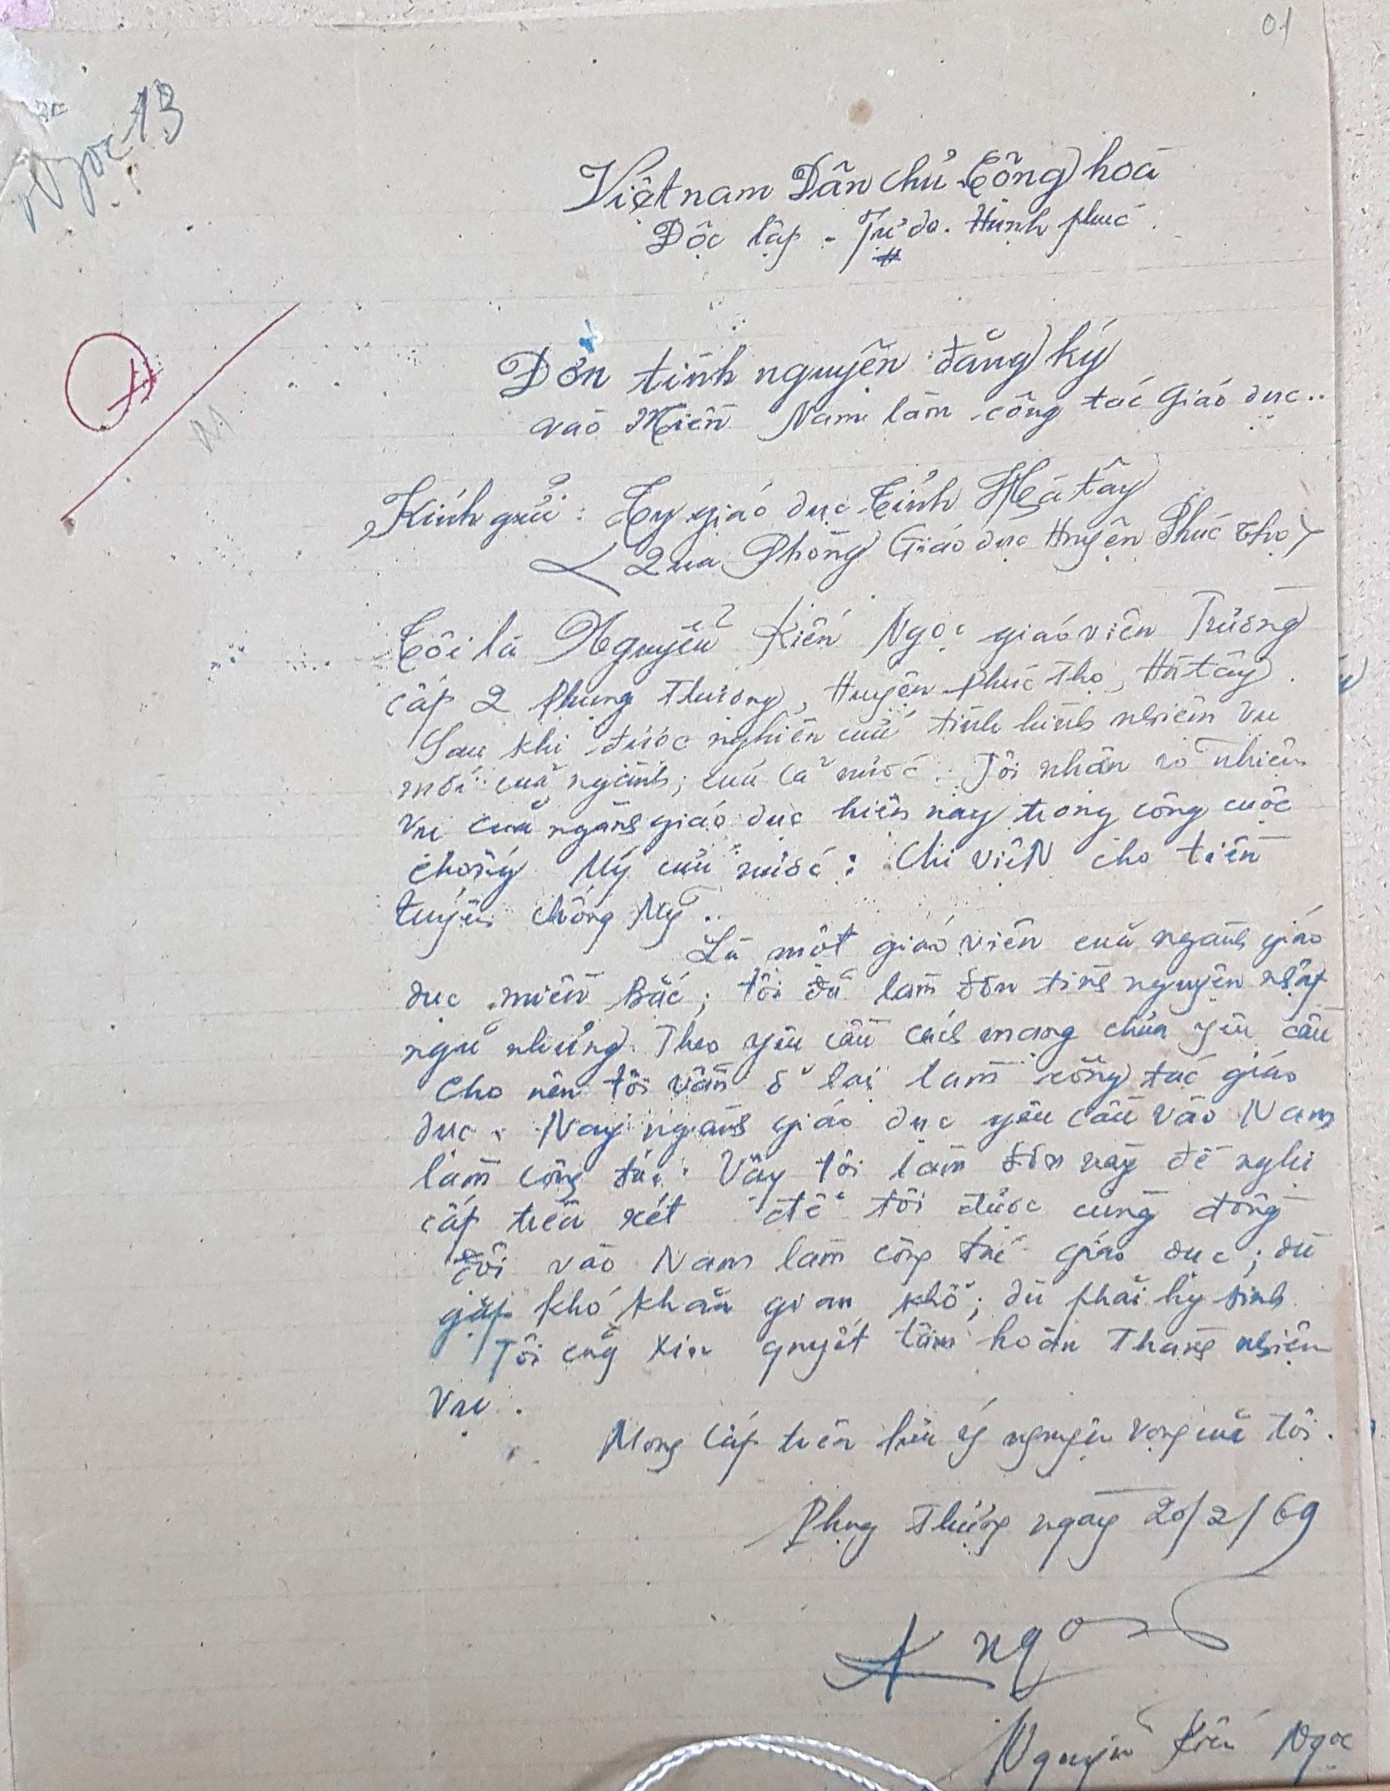 01
Ngọc 13
Việt nam Dân chủ Cộng hoà
Độc lập - Tự do - Hạnh phúc
Đơn tình nguyện đăng ký
vào Miền Nam làm công tác Giáo dục..
Kính gửi: Ty giáo dục Tỉnh Hà tây
(Qua Phòng Giáo dục Huyện Phúc Thọ)
Tôi là Nguyễn Kiến Ngọc giáo viên Trường
cấp 2 Phụng Thượng, Huyện Phúc Thọ, Hà tây.
Sau khi được nghiên cứu tình hình nhiệm vụ
mới của ngành, của cả nước. Tôi nhận rõ nhiệm
vụ của ngành giáo dục hiện nay trong công cuộc
chống Mỹ cứu nước: Chi viện cho tiền
tuyến chống Mỹ..
Là một giáo viên của ngành giáo
dục miền Bắc; tôi đã làm đơn tình nguyện nhập
ngũ nhưng. Theo yêu cầu cách mạng chưa yêu cầu
cho nên tôi vẫn ở lại làm công tác giáo
dục. Nay ngành giáo dục yêu cầu vào Nam
làm công tác. Vậy tôi làm đơn này đề nghị
cấp trên xét để tôi được cùng đồng
đội vào Nam làm công tác giáo dục; dù
gặp khó khăn gian khổ; dù phải hy sinh
Tôi cũng xin quyết tâm hoàn Thành nhiệm
vụ.
Mong cấp trên lưu ý nguyện vọng của tôi.
Phụng Thượng ngày 20/2/69
Ngọc
Nguyễn Kiến Ngọc